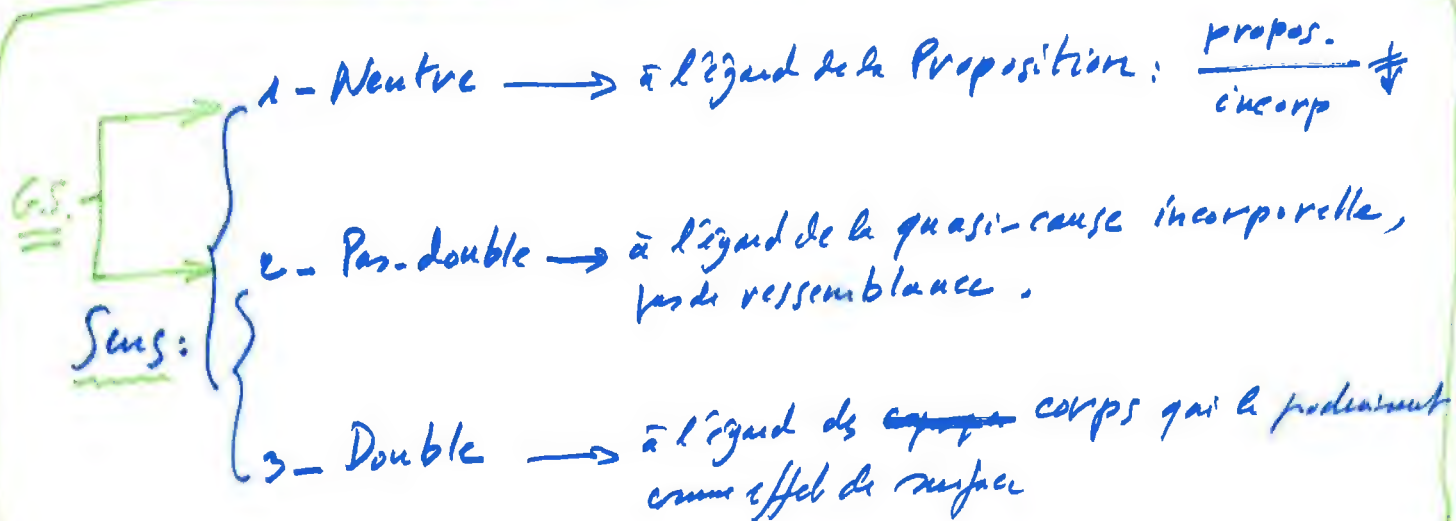 1 - Neutre → à l'égard de la Proposition : propos. / incorp
G.S.
2 - Pas-double → à l'égard de la quasi-cause incorporelle,
pas de ressemblance.
Sens :
3 - Double → à l'égard des corps qui le produisent
comme effet de surface